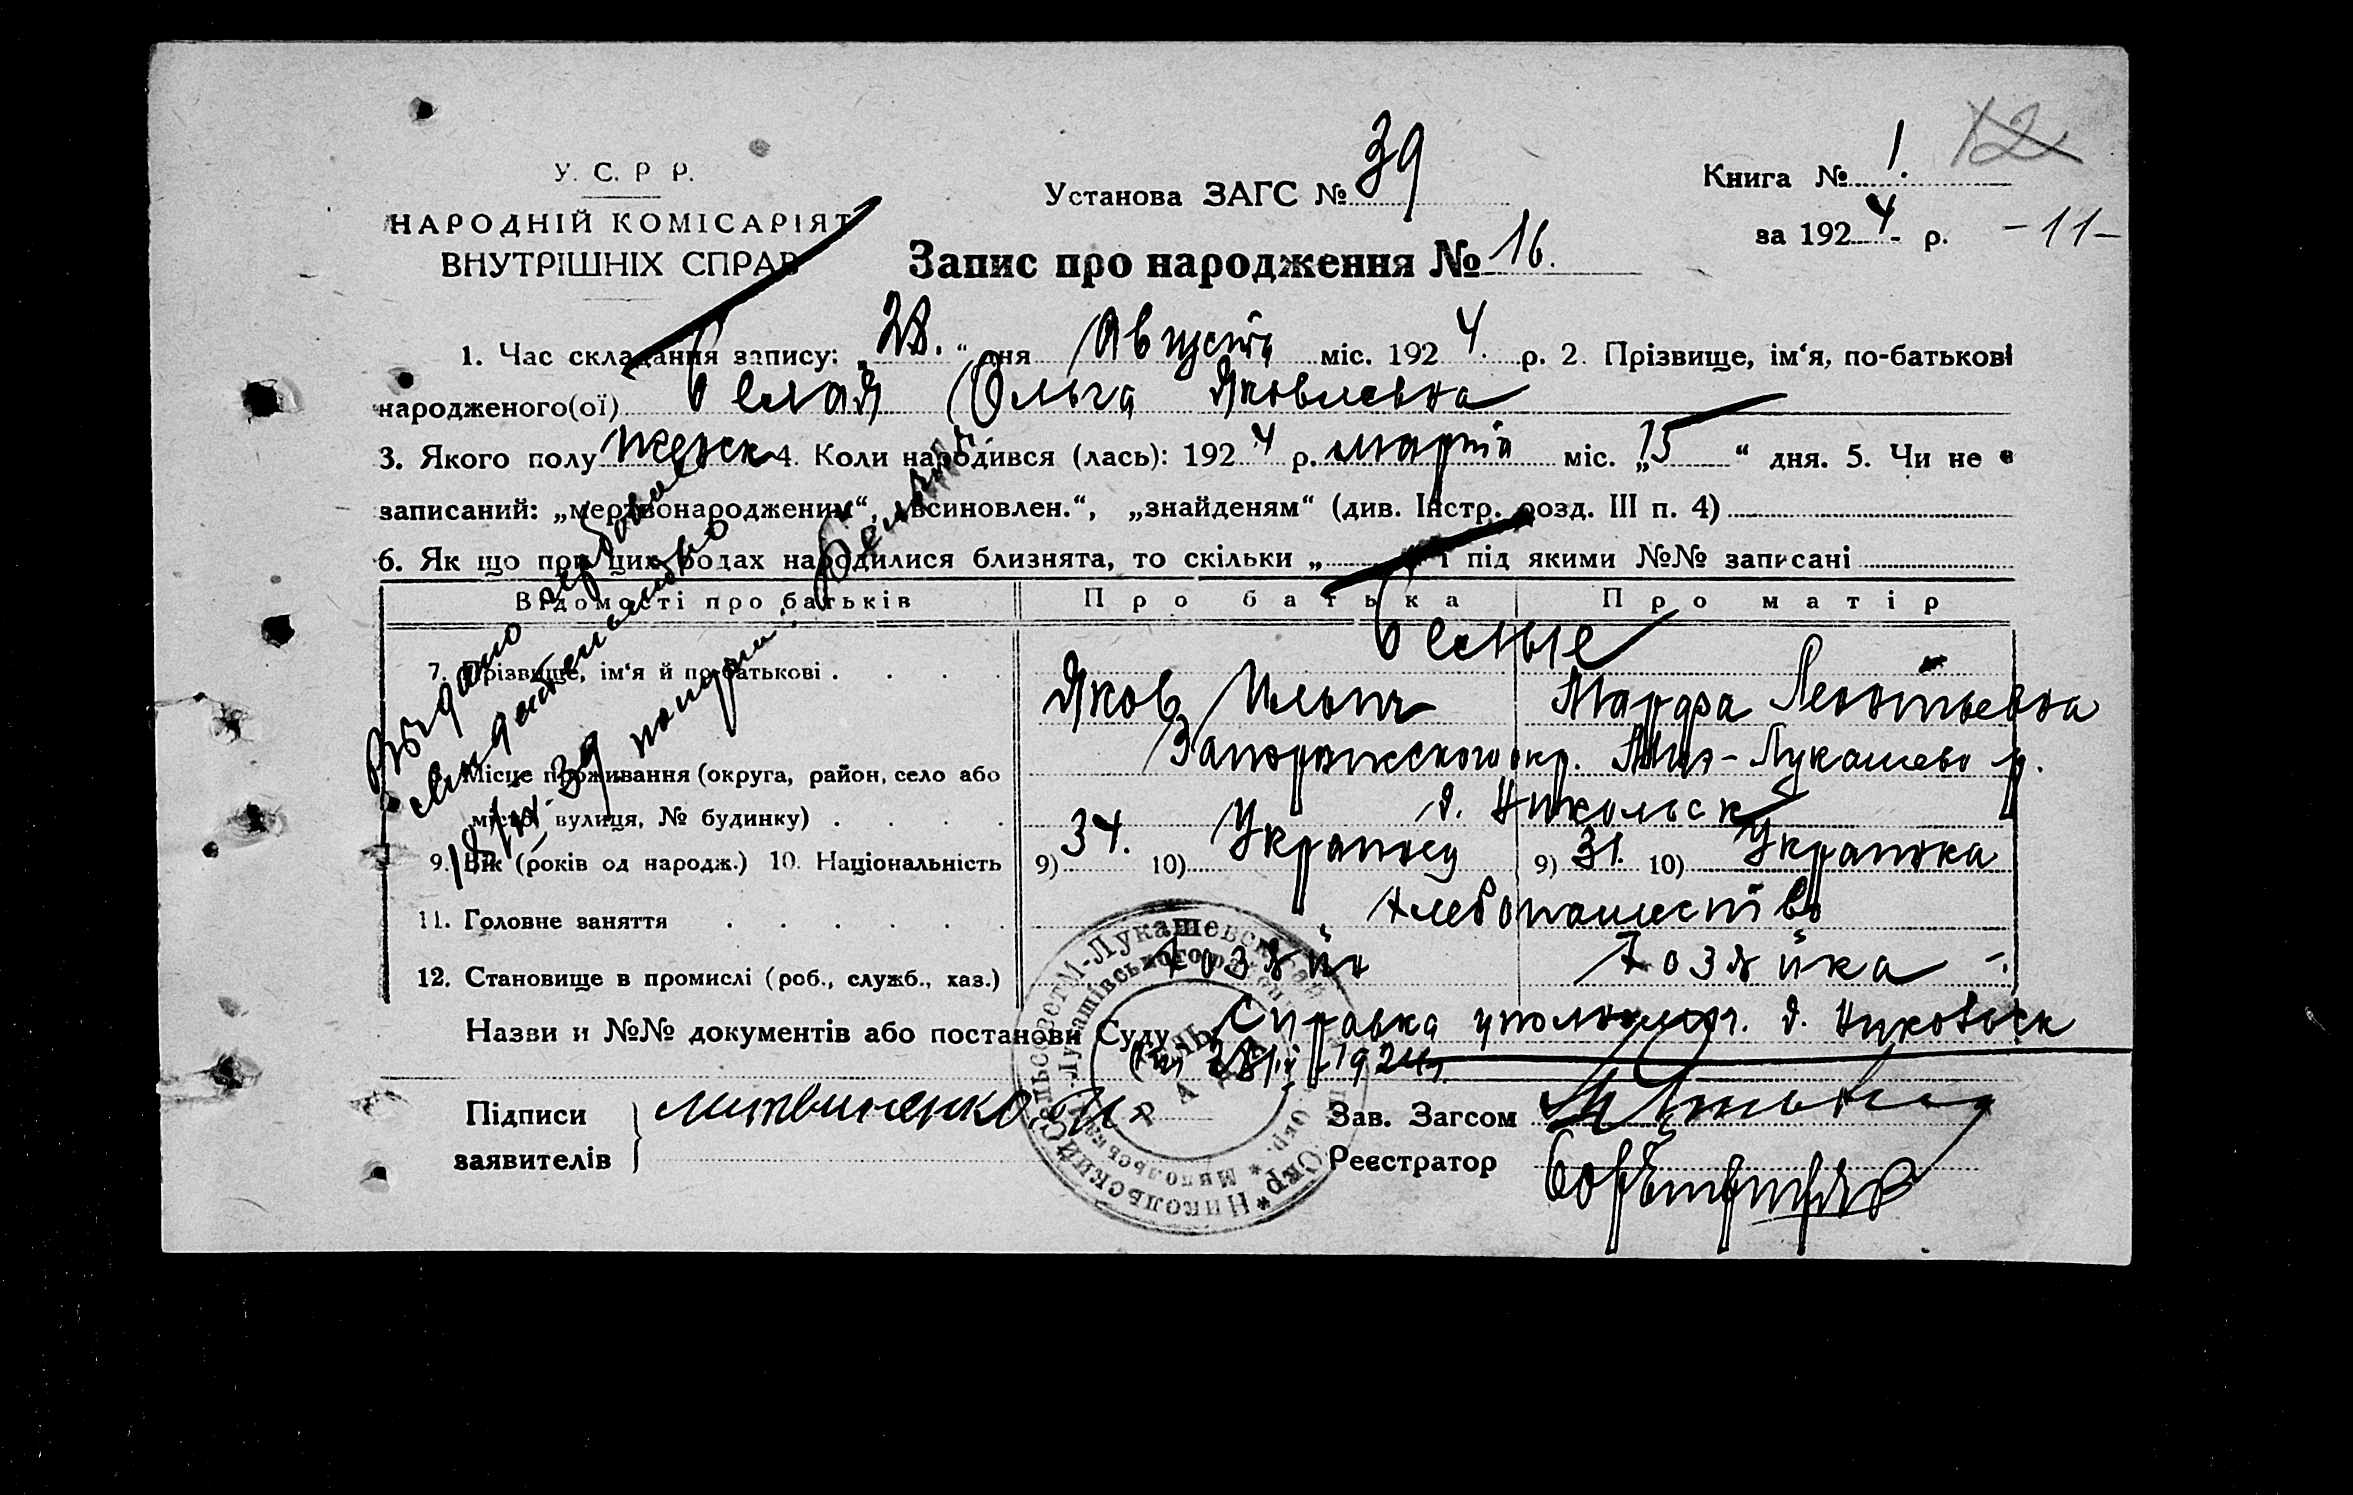 12
У. С. Р Р.
НАРОДНІЙ КОМІСАРІЯТ
ВНУТРІШНІХ СПРАВ
Установа ЗАГС № 39
Книга № 1.
за 1924 р. -11-
Запис про народження № 16.
1. Час складання запису: „28.“ дня Августа міс. 1924. р. 2. Прізвище, ім‘я, по-батькові
народженого(ої) Белая Ольга Яковлевна
3. Якого полу женск 4. Коли народився (лась): 1924 р. марта міс. „15“ дня. 5. Чи не є
записаний: „мертвонародженим“, „всиновлен.“, „знайденям“ (див. Інстр. розд. III п. 4)
6. Як що при цих родах народилися близнята, то скільки „ і під якими №№ записані
Відомості про батьків Про батька Про матір
Белые
7. Прізвище, ім‘я й по-батькові . . . . Яков Ильич Марфа Леонтьевна
Місце проживання (округа, район, село або Запорожского окр. Мих-Лукашево р.
місто, вулиця, № будинку) . . . . д. Никольск
9. Вік (років од народж.) 10. Національність 9) 34. 10) Украинец 9) 31. 10) Украинка
11. Головне заняття . . . . . . Хлебопашество
12. Становище в промислі (роб., служб., хаз.) Хозяин Хозяйка
Назви и №№ документів або постанови Суду Справка д. Никольск
1924
Підписи заявителів Литвиненко
Зав. Загсом
Реєстратор
Выдано повторное
свидетельство
39
Белая
РАДА